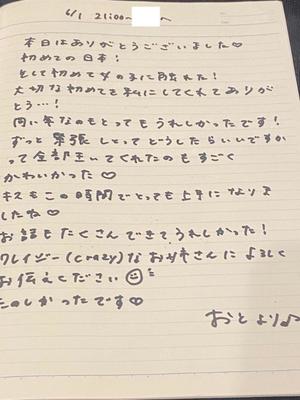 6/1 21:00〜 へ
本日はありがとうございました♡
初めての日本！
そして初めて女の子に触れた！
大切な初めてを私にしてくれてありが
とう…！
同い年なのもとってもうれしかったです！
ずっと緊張しとってどうしたらいいですか
って全部きいてくれたのもすごく
かわいかった♡
キスもこの時間でとっても上手になりま
したね♡
お話もたくさんできてうれしかった！
クレイジー(crazy)なお母さんによろしく
お伝えください☺
たのしかったです♡
おとより♪